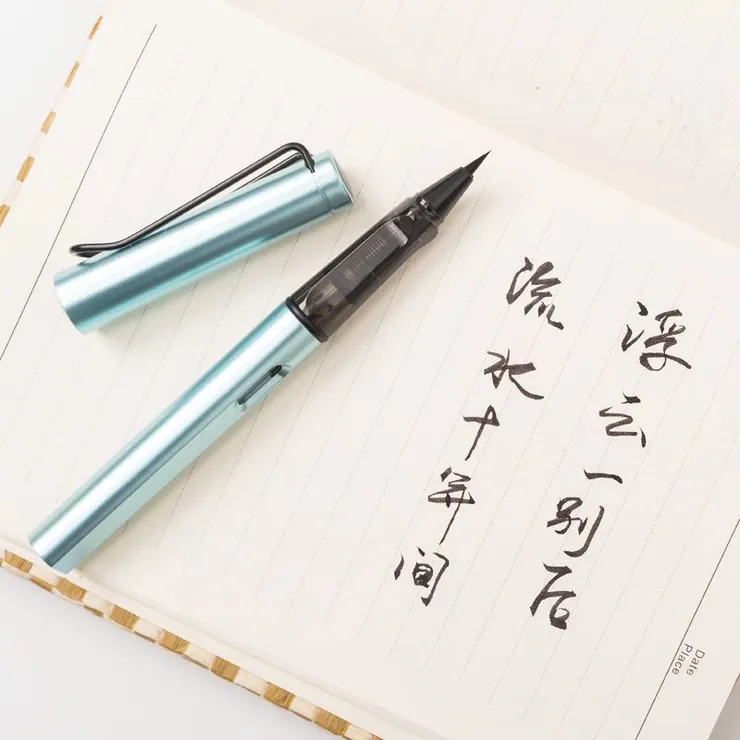 浮云一别后
流水十年间
Date
Place